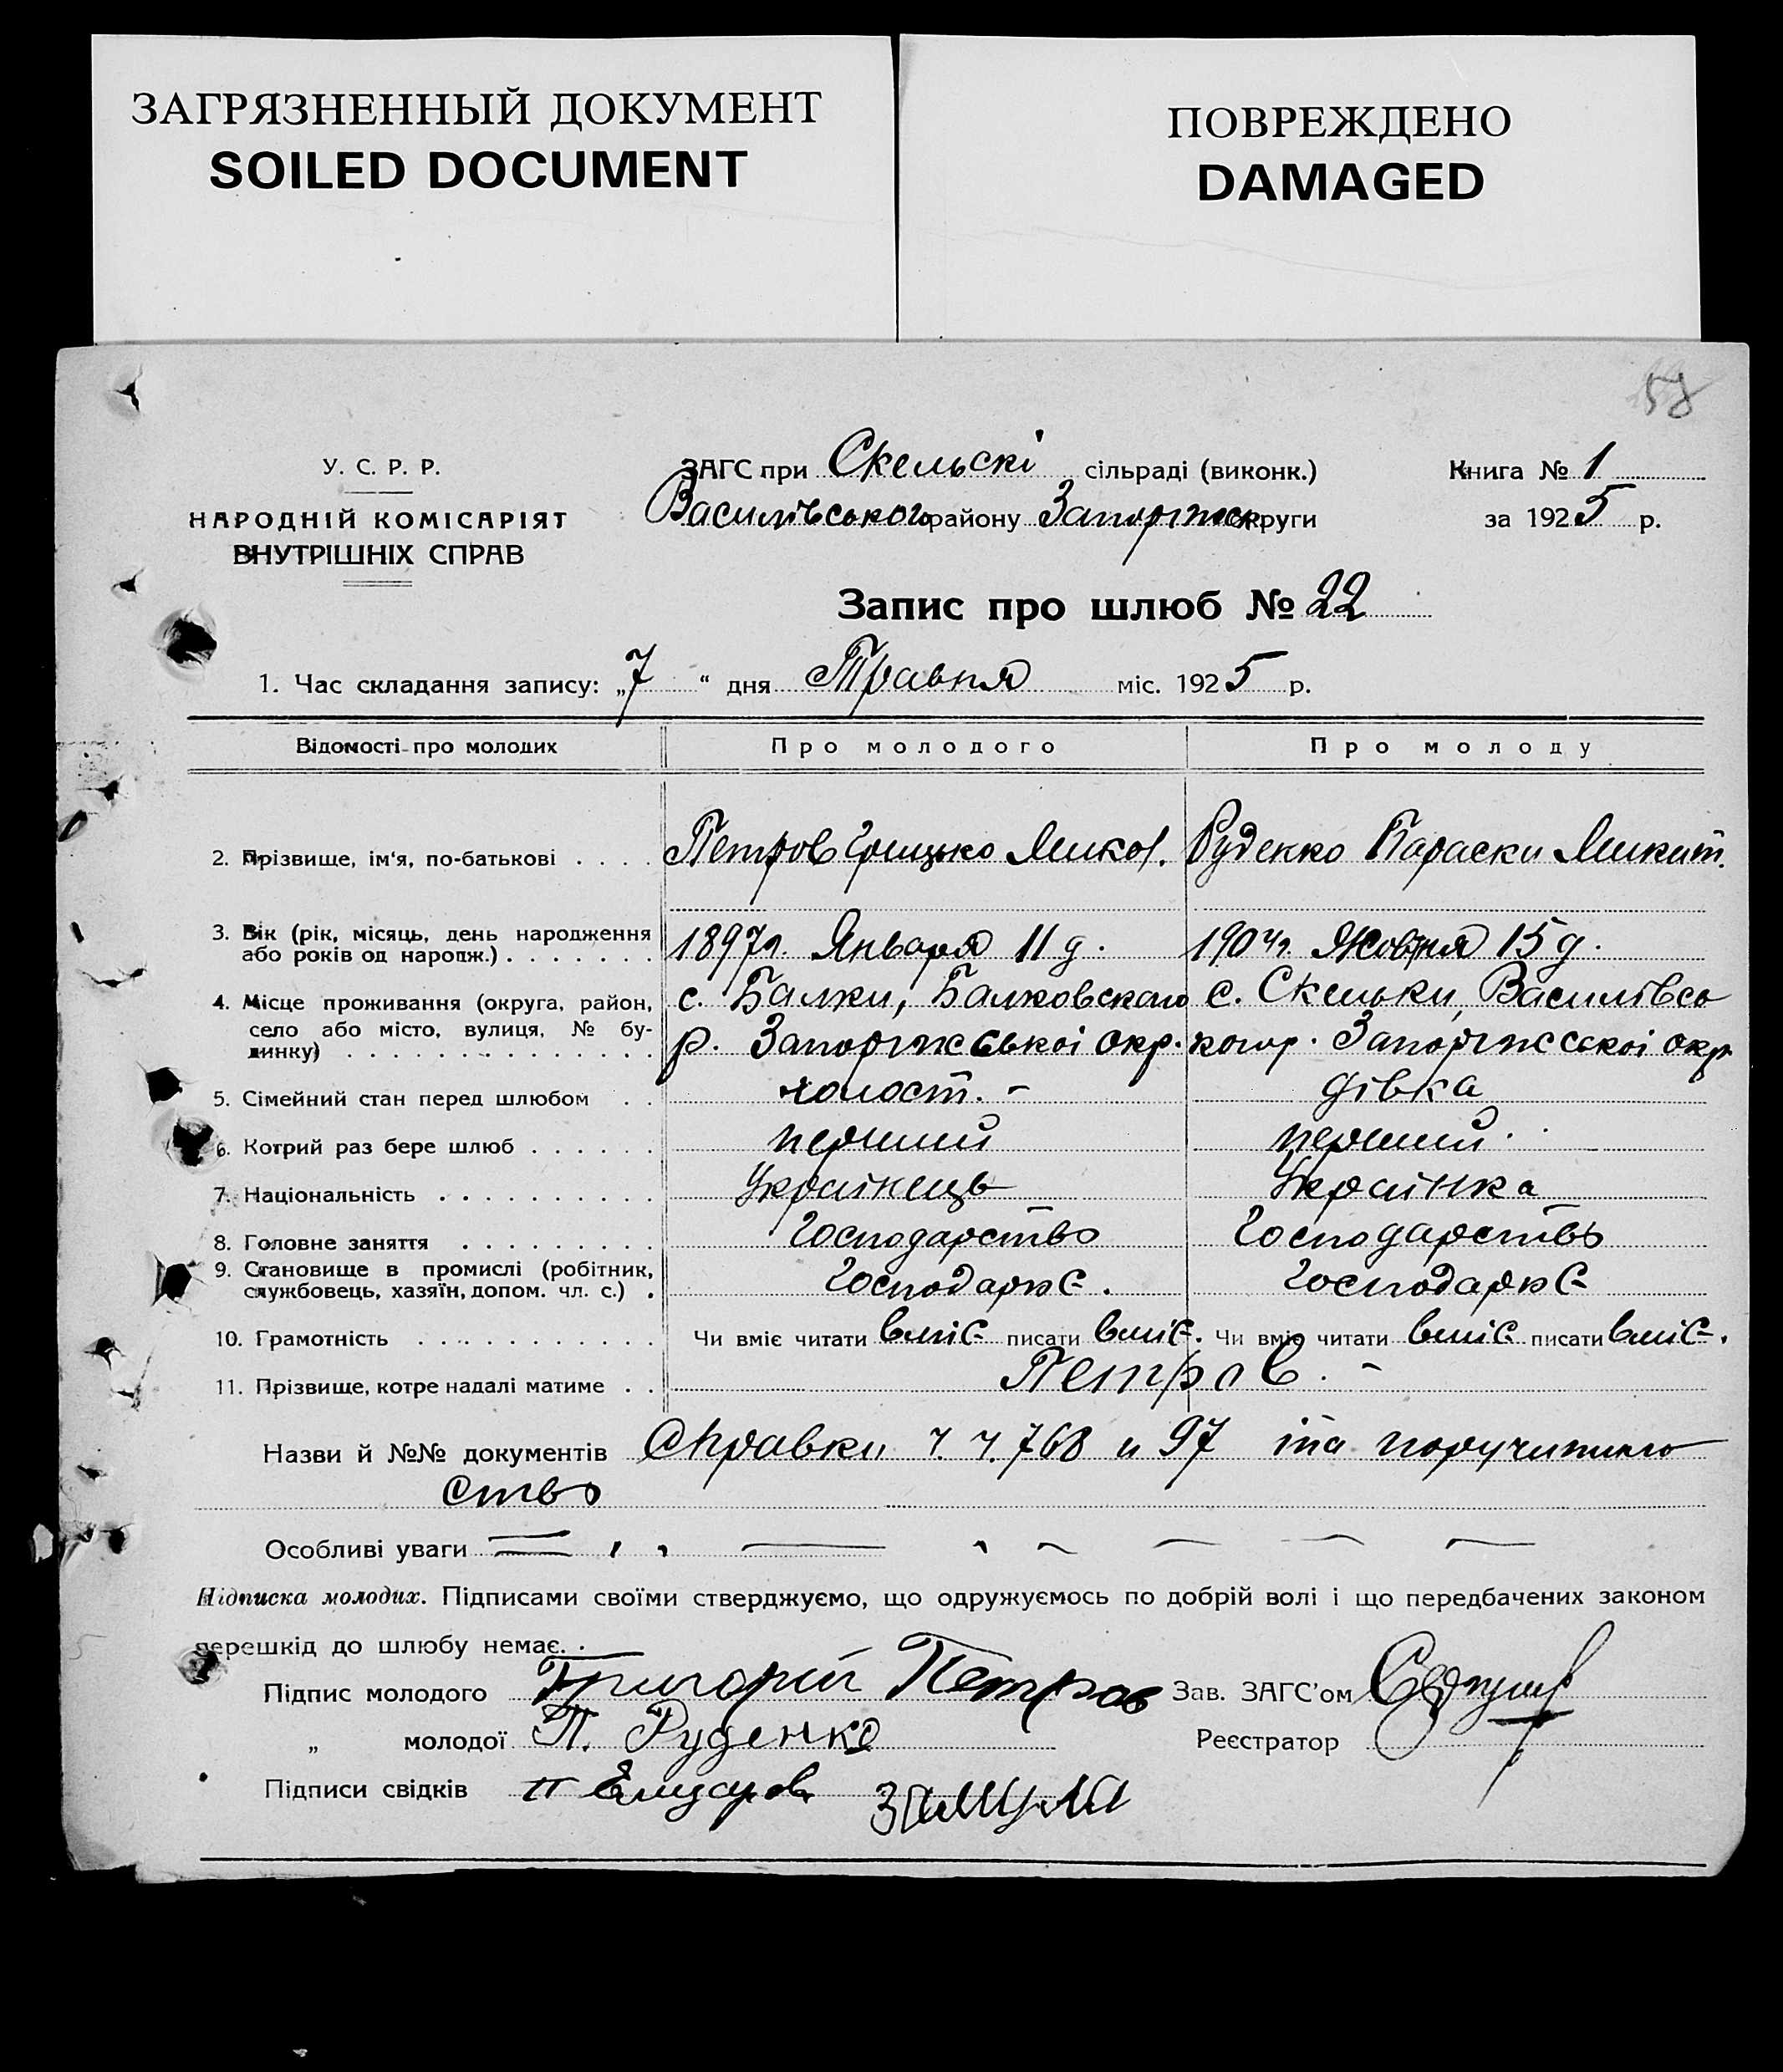 ЗАГРЯЗНЕННЫЙ ДОКУМЕНТ
SOILED DOCUMENT
ПОВРЕЖДЕНО
DAMAGED
У. С. Р. Р.
НАРОДНІЙ КОМІСАРІЯТ
ВНУТРІШНІХ СПРАВ
ЗАГС при Скельскі сільраді (виконк.)
Василівського району Запоріжськ округи
Книга № 1
за 1925 р.
Запис про шлюб № 22
1. Час складання запису: „7“ дня Травня міс. 1925 р.
Відомості про молодих Про молодого Про молоду
2. Прізвище, ім'я, по-батькові . . . . Петров Грицько Микол. Руденко Параски Микит.
3. Вік (рік, місяць, день народження
або років од народж.) . . . . . . . 1897 г. Января 11 д. 1904 г. Жовтня 15 д.
4. Місце проживання (округа, район, с. Балки, Балковского с. Скельки, Василівсь
село або місто, вулиця, № бу-
динку) . . . . . . . . . . . . . . р. Запоріжської окр. кого р. Запоріжської окр.
5. Сімейний стан перед шлюбом . . холост. – дівка
6. Котрий раз бере шлюб . . . . . . перший перший.
7. Національність . . . . . . . . . . Українець Українка
8. Головне заняття . . . . . . . . . Господарство Господарство
9. Становище в промислі (робітник,
службовець, хазяїн, допом. чл. с.) . Господарює. Господарює
10. Грамотність . . . . . . . . . . . Чи вміє читати вміє писати вміє. Чи вміє читати вміє писати вміє.
11. Прізвище, котре надалі матиме . . Петров. –
Назви й №№ документів Справки ч. ч. 768 и 97 та поручитель
ство
Особливі уваги
Підписка молодих. Підписами своїми стверджуємо, що одружуємось по добрій волі і що передбачених законом
перешкід до шлюбу немає.
Підпис молодого Григорій Петров Зав. ЗАГС'ом
„ молодої П. Руденко Реєстратор
Підписи свідків